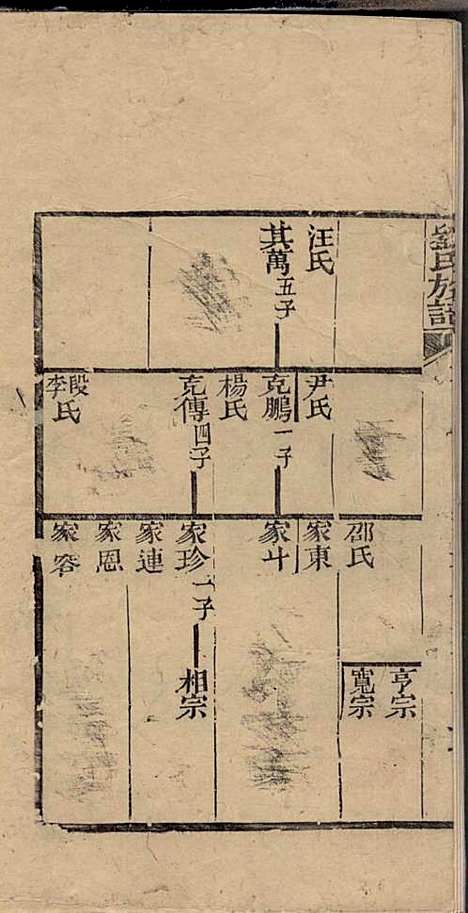 氏族譜
汪氏
其萬五子
尹氏
克鵬一子
楊氏
克傳四子
段李氏
亨宗
寬宗
邵氏
家東
家斗
家珍一子
相宗
家連
家恩
家容